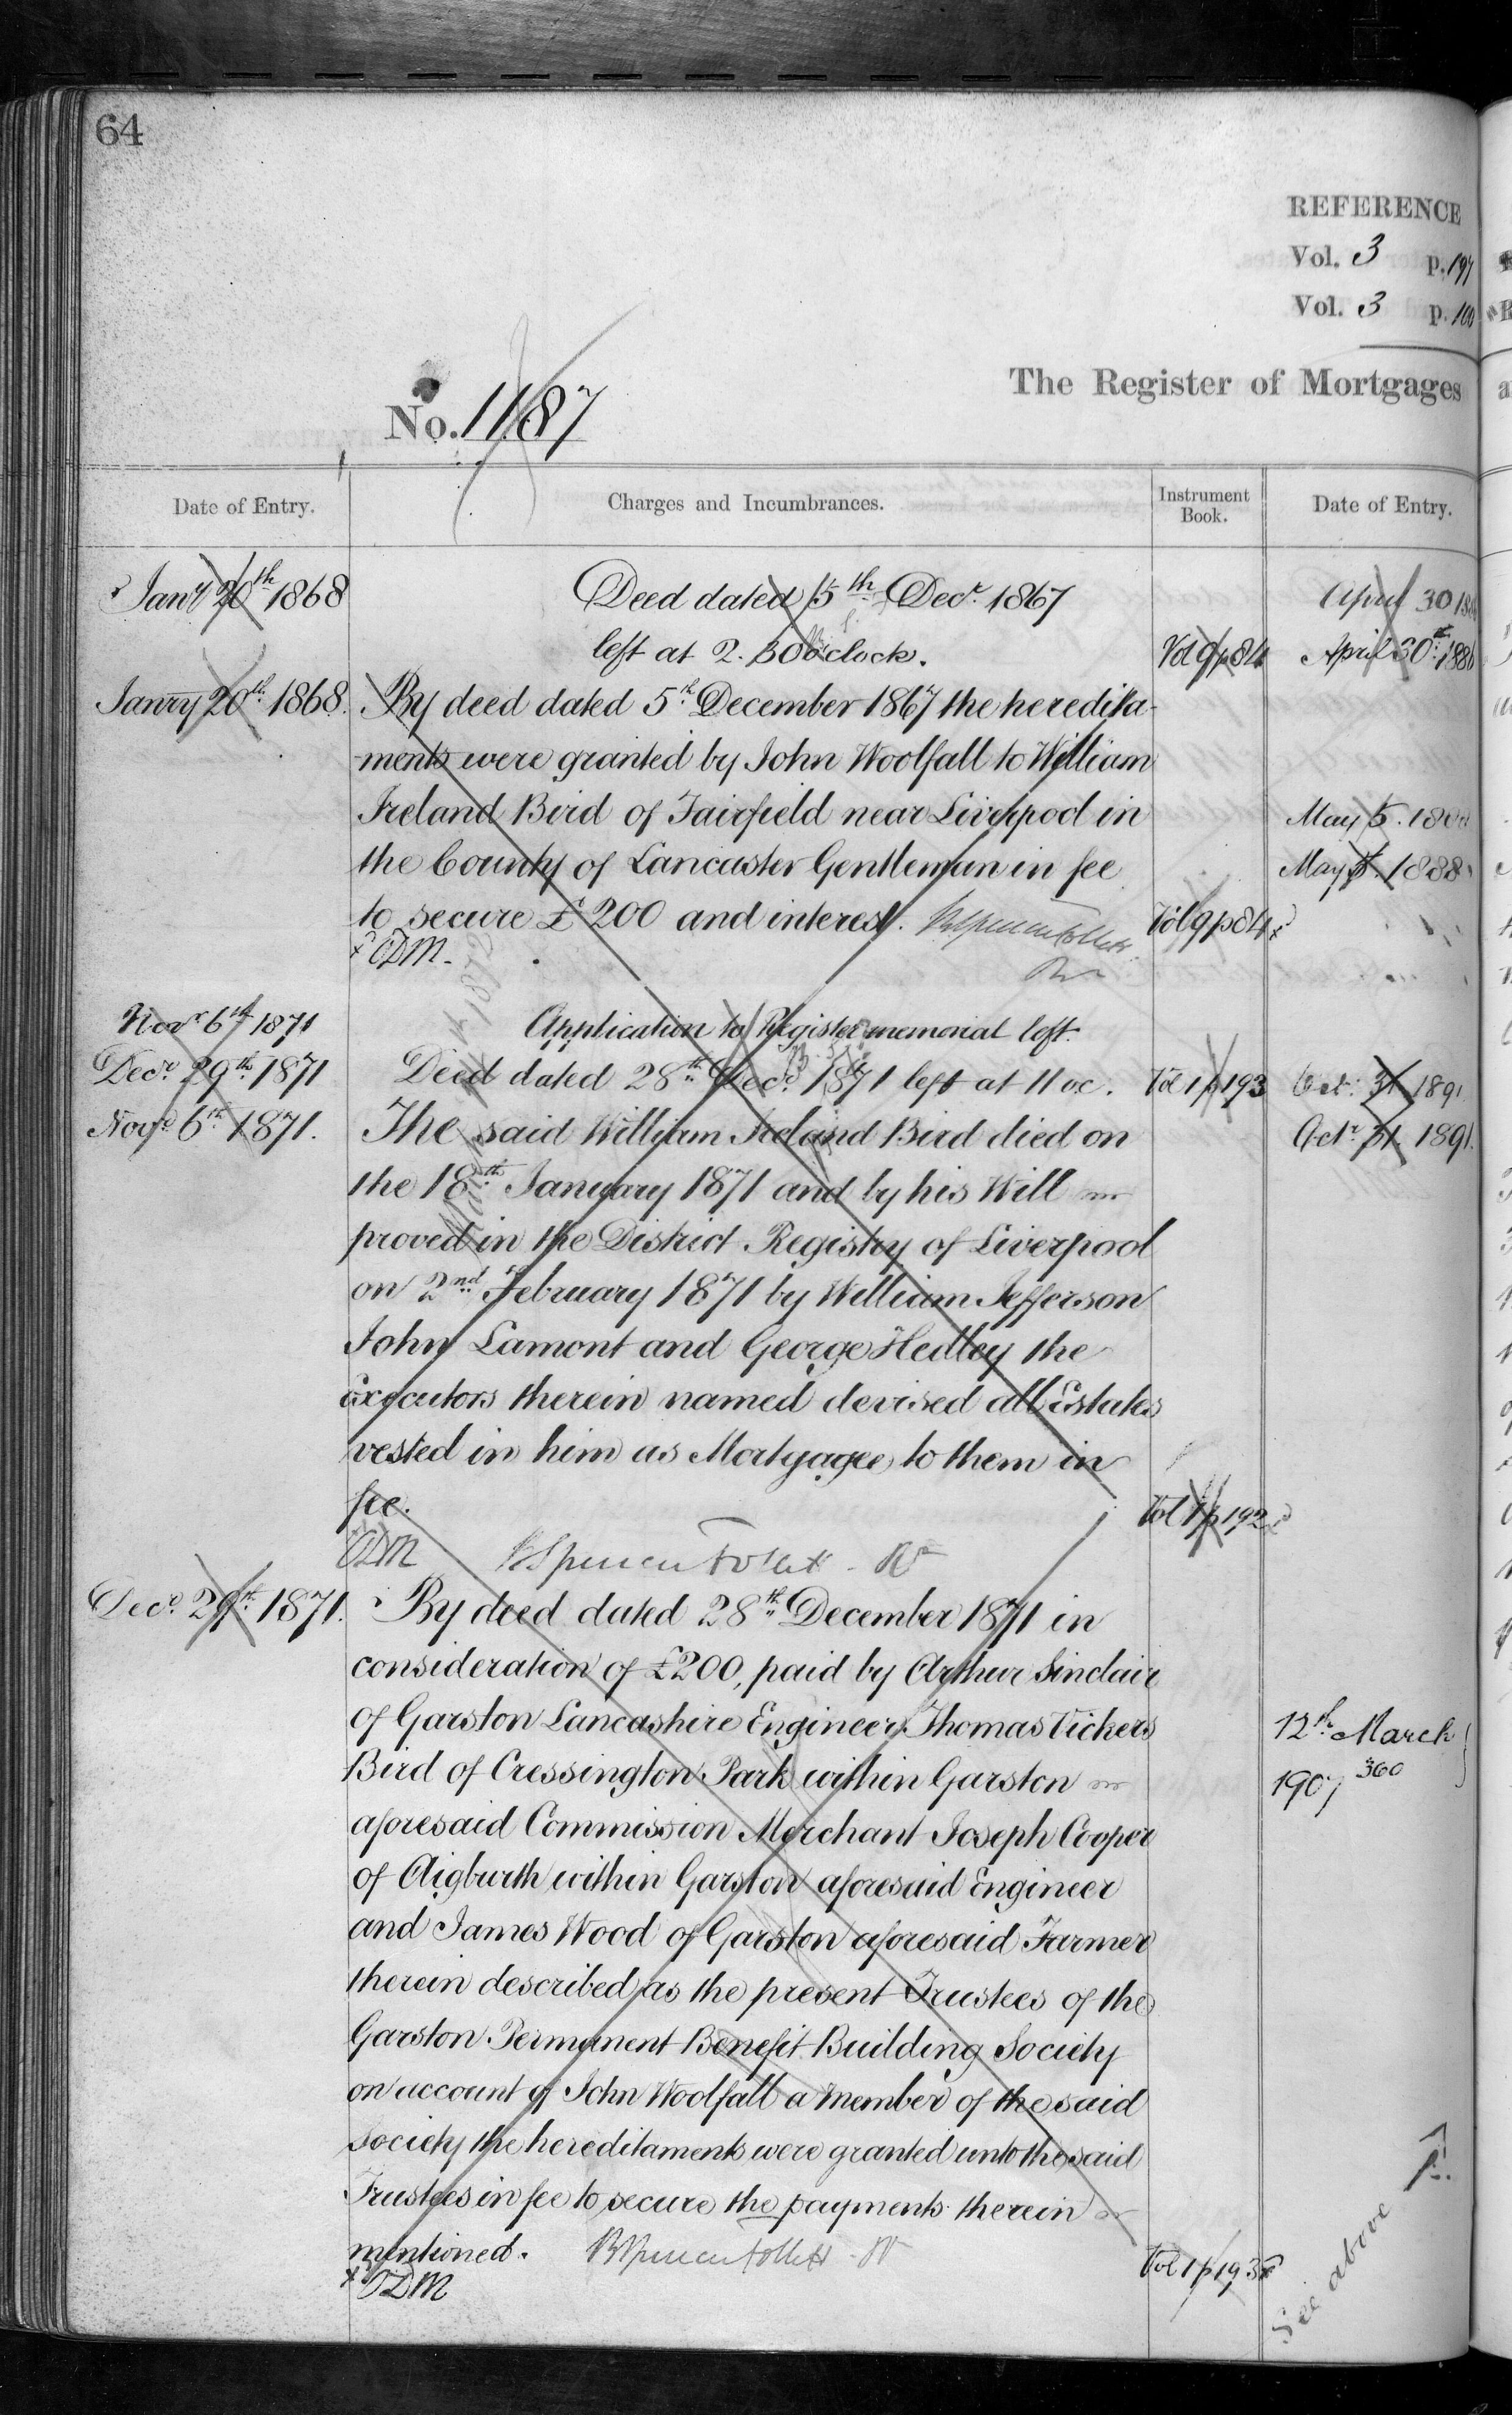 64
REFERENCE
Vol. 3 p. 197
Vol. 3 p. 100
The Register of Mortgages
No. 1187
Date of Entry.
Charges and Incumbrances.
Instrument Book.
Date of Entry.
Jany 20th 1868
Deed dated 5th Decr. 1867
April 30
left at 2.30 o'clock.
Vol 9 p 84
April 30th
Janry 20th 1868.
By deed dated 5th December 1867 the heredita-
ments were granted by John Woolfall to William
Ireland Bird of Fairfield near Liverpool in
May 5.
the County of Lancaster Gentleman in fee
May 5. 1888
to secure £200 and interest.
Vol 9 p 84
Novr 6th 1871
Application to Register memorial left.
Decr 29th 1871
Deed dated 28th Decr 1871 left at 11 oc.
Vol 1 p 193
Oct. 31 1891
Novr 6th 1871.
The said William Ireland Bird died on
Octr 31. 1891.
the 18th January 1871 and by his Will
proved in the District Registry of Liverpool
on 2nd February 1871 by William Jefferson
John Lamont and George Hedley the
Executors therein named devised all Estates
vested in him as Mortgagee to them in
fee.
Vol 1 p 192
Decr 29th 1871.
By deed dated 28th December 1871 in
consideration of £200, paid by Arthur Sinclair
of Garston Lancashire Engineer Thomas Vickers
12th March
Bird of Cressington Park within Garston
1907 360
aforesaid Commission Merchant Joseph Cooper
of Aigburth within Garston aforesaid Engineer
and James Wood of Garston aforesaid Farmer
therein described as the present Trustees of the
Garston Permanent Benefit Building Society
on account of John Woolfall a member of the said
Society the hereditaments were granted unto the said
Trustees in fee to secure the payments therein
mentioned.
Vol 1 p 193
See above